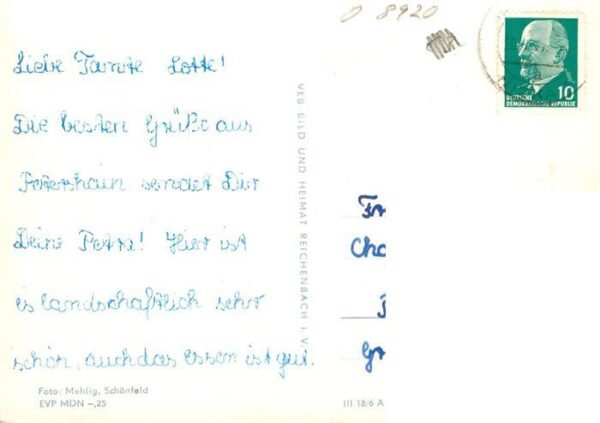 0 8920
DEUTSCHE
DEMOKRATISCHE REPUBLIK 10
Liebe Tante Lotte!
Die besten Grüße aus
sendet Dir
Deine Petra! Hier ist
es landschaftlich sehr
schön, auch das essen ist gut.
VEB BILD UND HEIMAT REICHENBACH I. V.
Fr
Cha
Gr
Foto: Mehlig, Schönfeld
EVP MDN –,25
III 18/6 A